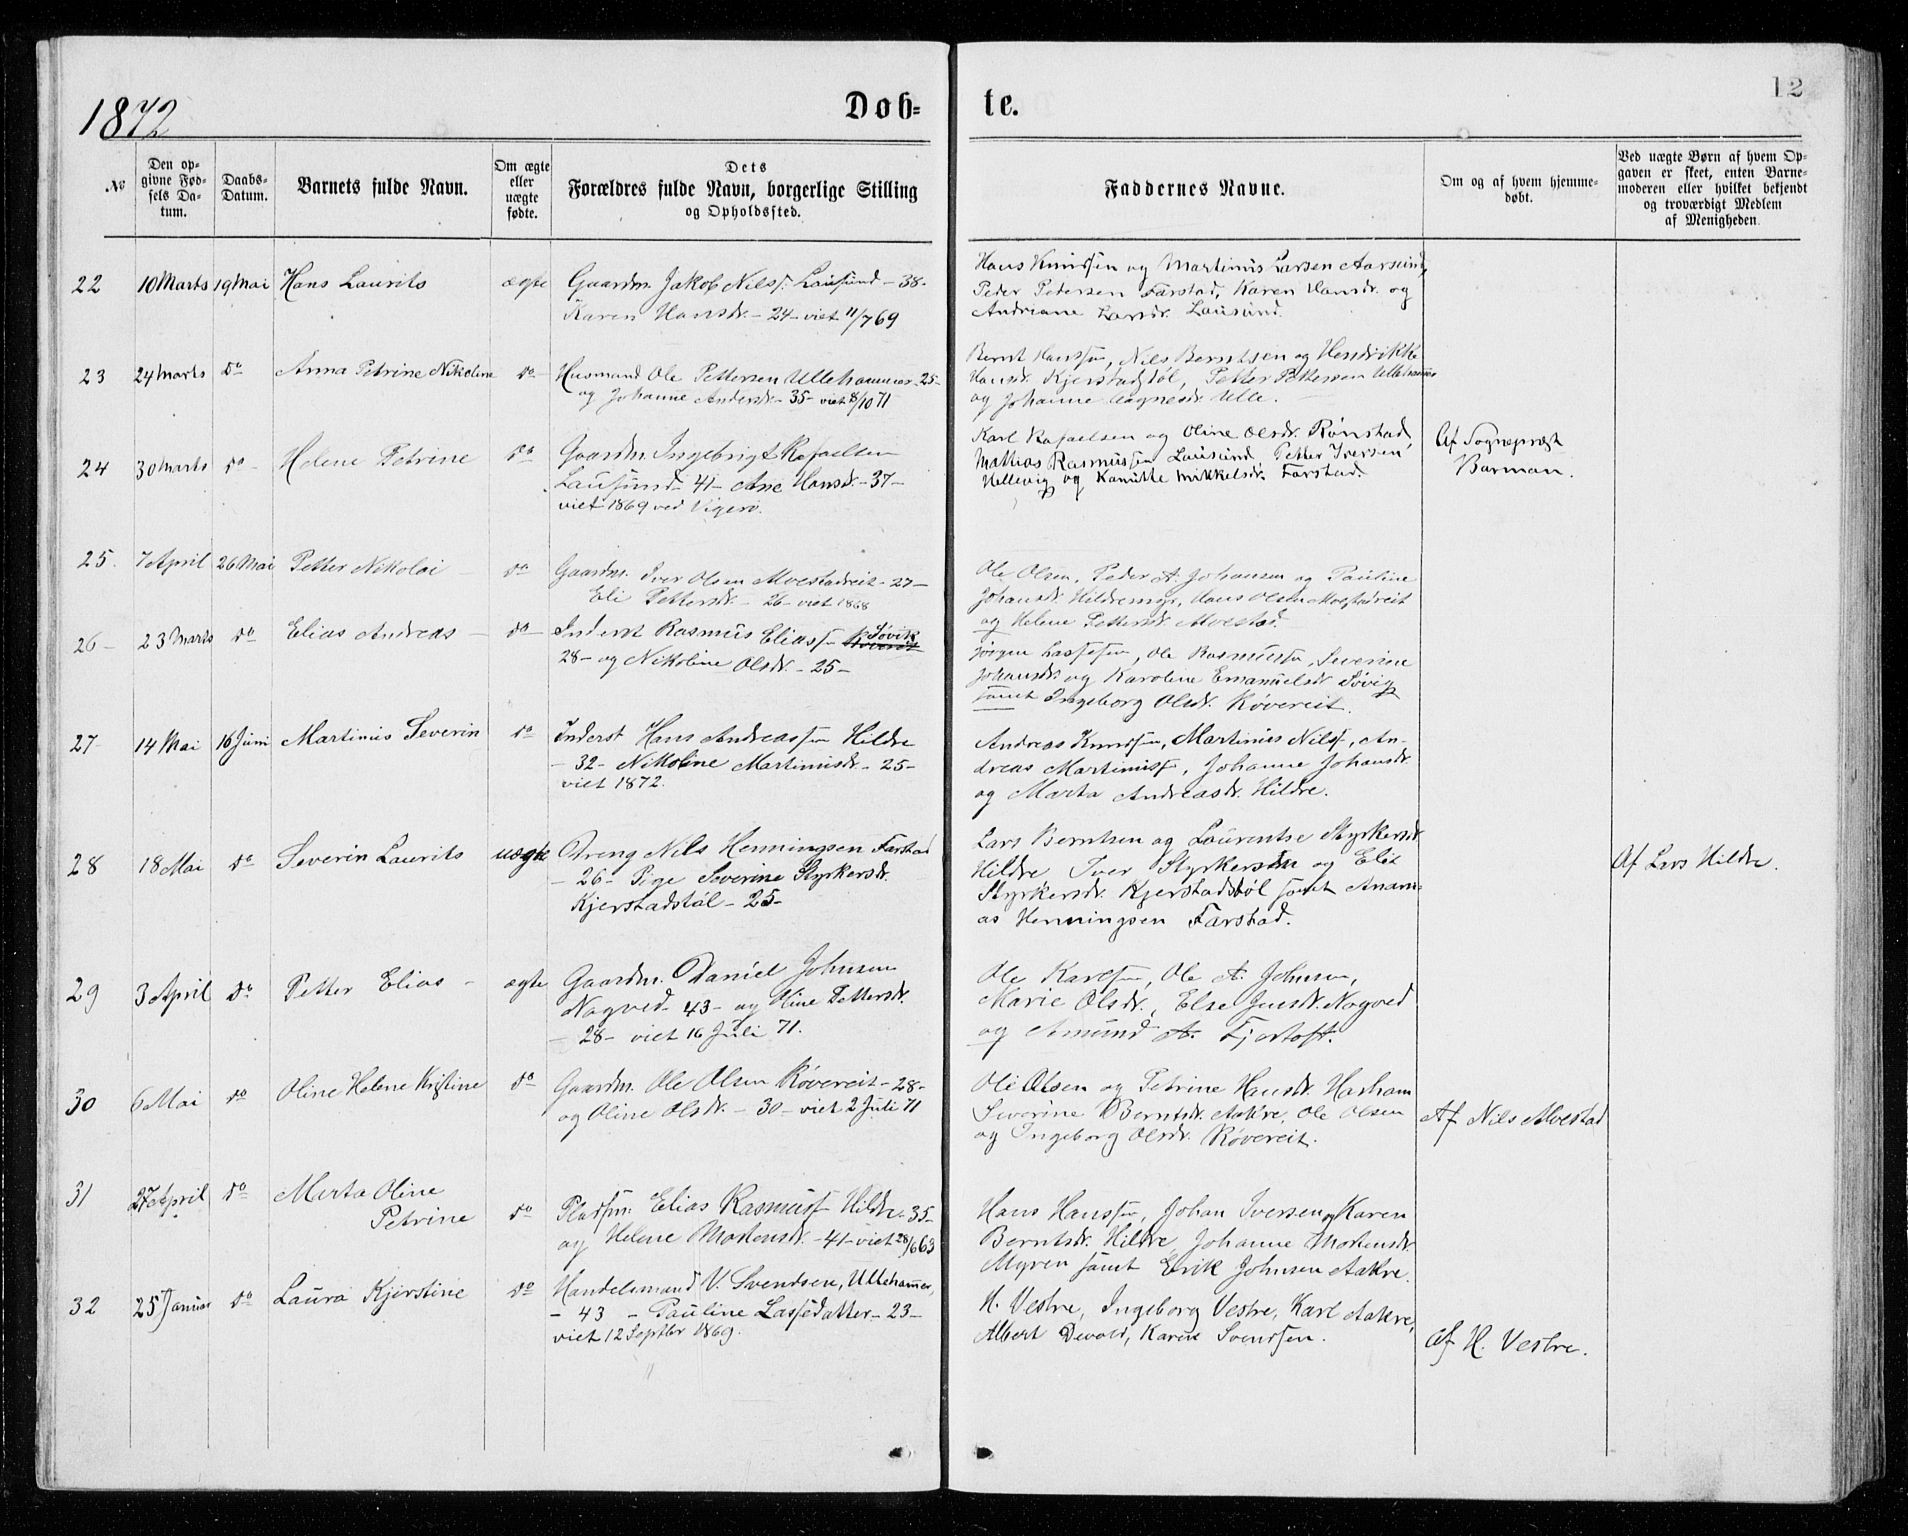 1872
Døb-
te.
12
No
Den op-
givne Fød-
sels Da-
tum.
Daabs-
Datum.
Barnets fulde Navn.
Om ægte
eller
uægte
fødte.
Dets
Forældres fulde Navn, borgerlige Stilling
og Opholdssted.
Faddernes Navne.
Om og af hvem hjemme-
døbt.
Ved uægte Børn af hvem Op-
gaven er skeet, enten Barne-
moderen eller hvilket bekjendt
og troværdigt Medlem
af Menigheden.
22 10 Marts 19 Mai Hans Laurits ægte Gaardm. Jakob Nilss. Lausund - 38-
Karen Hansdr. - 24 - viet 11/7 69
Hans Knudsen og Martinus Larsen Aarsund,
Peder Pedersen Farstad, Karen Hansdr. og
Andriane Larsdr. Lausund.
23 24 Marts do Anna Petrine Nikoline do Husmand Ole Pettersen Ullehammer - 25-
og Johanne Andersdr. - 35 - viet 8/10 71
Bernt Hanssen, Nils Berntsen og Hendrikke
Hansdr. Kjerstadstøl, Petter Pettersen Ullehammer
og Johanne Aagnesdr. Ulle.
24 30 Marts do Helene Petrine do Gaardm. Ingebrigt Rafaelsen
Lausund - 41 - Ane Hansdr. - 37 -
viet 1869 ved Vigerø.
Karl Rafaelsen og Oline Olsdr. Rønstad,
Mathias Rasmussen Lausund, Petter Iversen
Hellevig og Kanutte Mikkelsdr. Farstad.
Af Sognepræst
Barman.
25. 7 April 26 Mai Petter Nikolai do Gaardm. Iver Olsen Alvestadreit - 27 -
Eli Pettersdr. - 26 - viet 1868
Ole Olsen, Peder A. Johansen og Pauline
Johansdr. Hildremyr, Hans Olsen Alvestadreit
og Helene Pettersdr. Alvestad.
26 - 23 Marts do Elias Andreas - do - Inderst Rasmus Eliass. Søvik
28 - og Nikoline Olsdr. - 25 -
Jørgen Lassesen, Ole Rasmuss., Severine
Johansdr. og Karoline Emanuelsdr. Søvig
samt Ingeborg Olsdr. Røvereit.
27 14 Mai 16 Juni Martinus Severin do Inderst Hans Andreassen Hildre
- 32 - Nikoline Martinusdr. - 25 -
viet 1872.
Andreas Knudsen, Martinus Nilss., An-
dreas Martinuss., Johanne Johansdr.
og Marta Andreasdr. Hildre.
28 18 Mai do Severin Laurits uægte Dreng Nils Henningsen Farstad
- 26 - Pige Severine Styrkersdr.
Kjerstadstøl - 25 -
Lars Berntsen og Laurentse Styrkersdr.
Hildre, Iver Styrkersen og Elit
Styrkersdr. Kjerstadstøl samt Anani-
as Henningsen Farstad.
Af Lars Hildre.
29 3 April do Petter Elias - ægte Gaardm. Daniel Johnsen
Nogved - 43 - og Oline Pettersdr.
- 28 - viet 16 Juli 71.
Ole Karlsen, Ole A. Johnsen,
Marie Olsdr., Else Jensdr. Nogved
og Amund A. Fjortoft.
30 6 Mai do Oline Helene Kristine do Gaardm. Ole Olsen Røvereit - 28 -
og Oline Olsdr. - 30 - viet 2 Juli 71
Ole Olsen og Petrine Hansdr. Harham
Severine Berntsdr. Aakre, Ole Olsen
og Ingeborg Olsdr. Røvereit.
Af Nils Alvestad
31 27 April do Marta Oline
Petrine do Pladsm. Elias Rasmuss. Hildre - 35 -
og Helene Mortensdr. - 41 - viet 28/6 63
Hans Hanssen, Johan Iversen og Karen
Berntsdr. Hildre, Johanne Mortensdr.
Myren samt Erik Johnsen Aakre.
32 25 Januar do Laura Kjerstine do Handelsmand V. Svendsen, Ullehammer,
- 43 - Pauline Lassedatter - 23 -
viet 12 Septbr 1869.
H. Vestre, Ingeborg Vestre, Karl Aakre,
Albert Devold, Karen Svendsen.
Af H. Vestre.